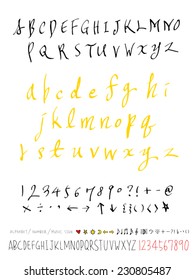 ABCDEFGHIJKLM
NOPQRSTUVWXYZ
abcdefghi
jklmnopqr
stuvwxyz
1234567890?!-@
×÷·.←→↑↓()~
ALPHABET/NUMBER/MUSIC ICON
ABCDEFGHIJKLMNOPQRSTUVWXYZ1234567890
shutterstock.com · 230805487